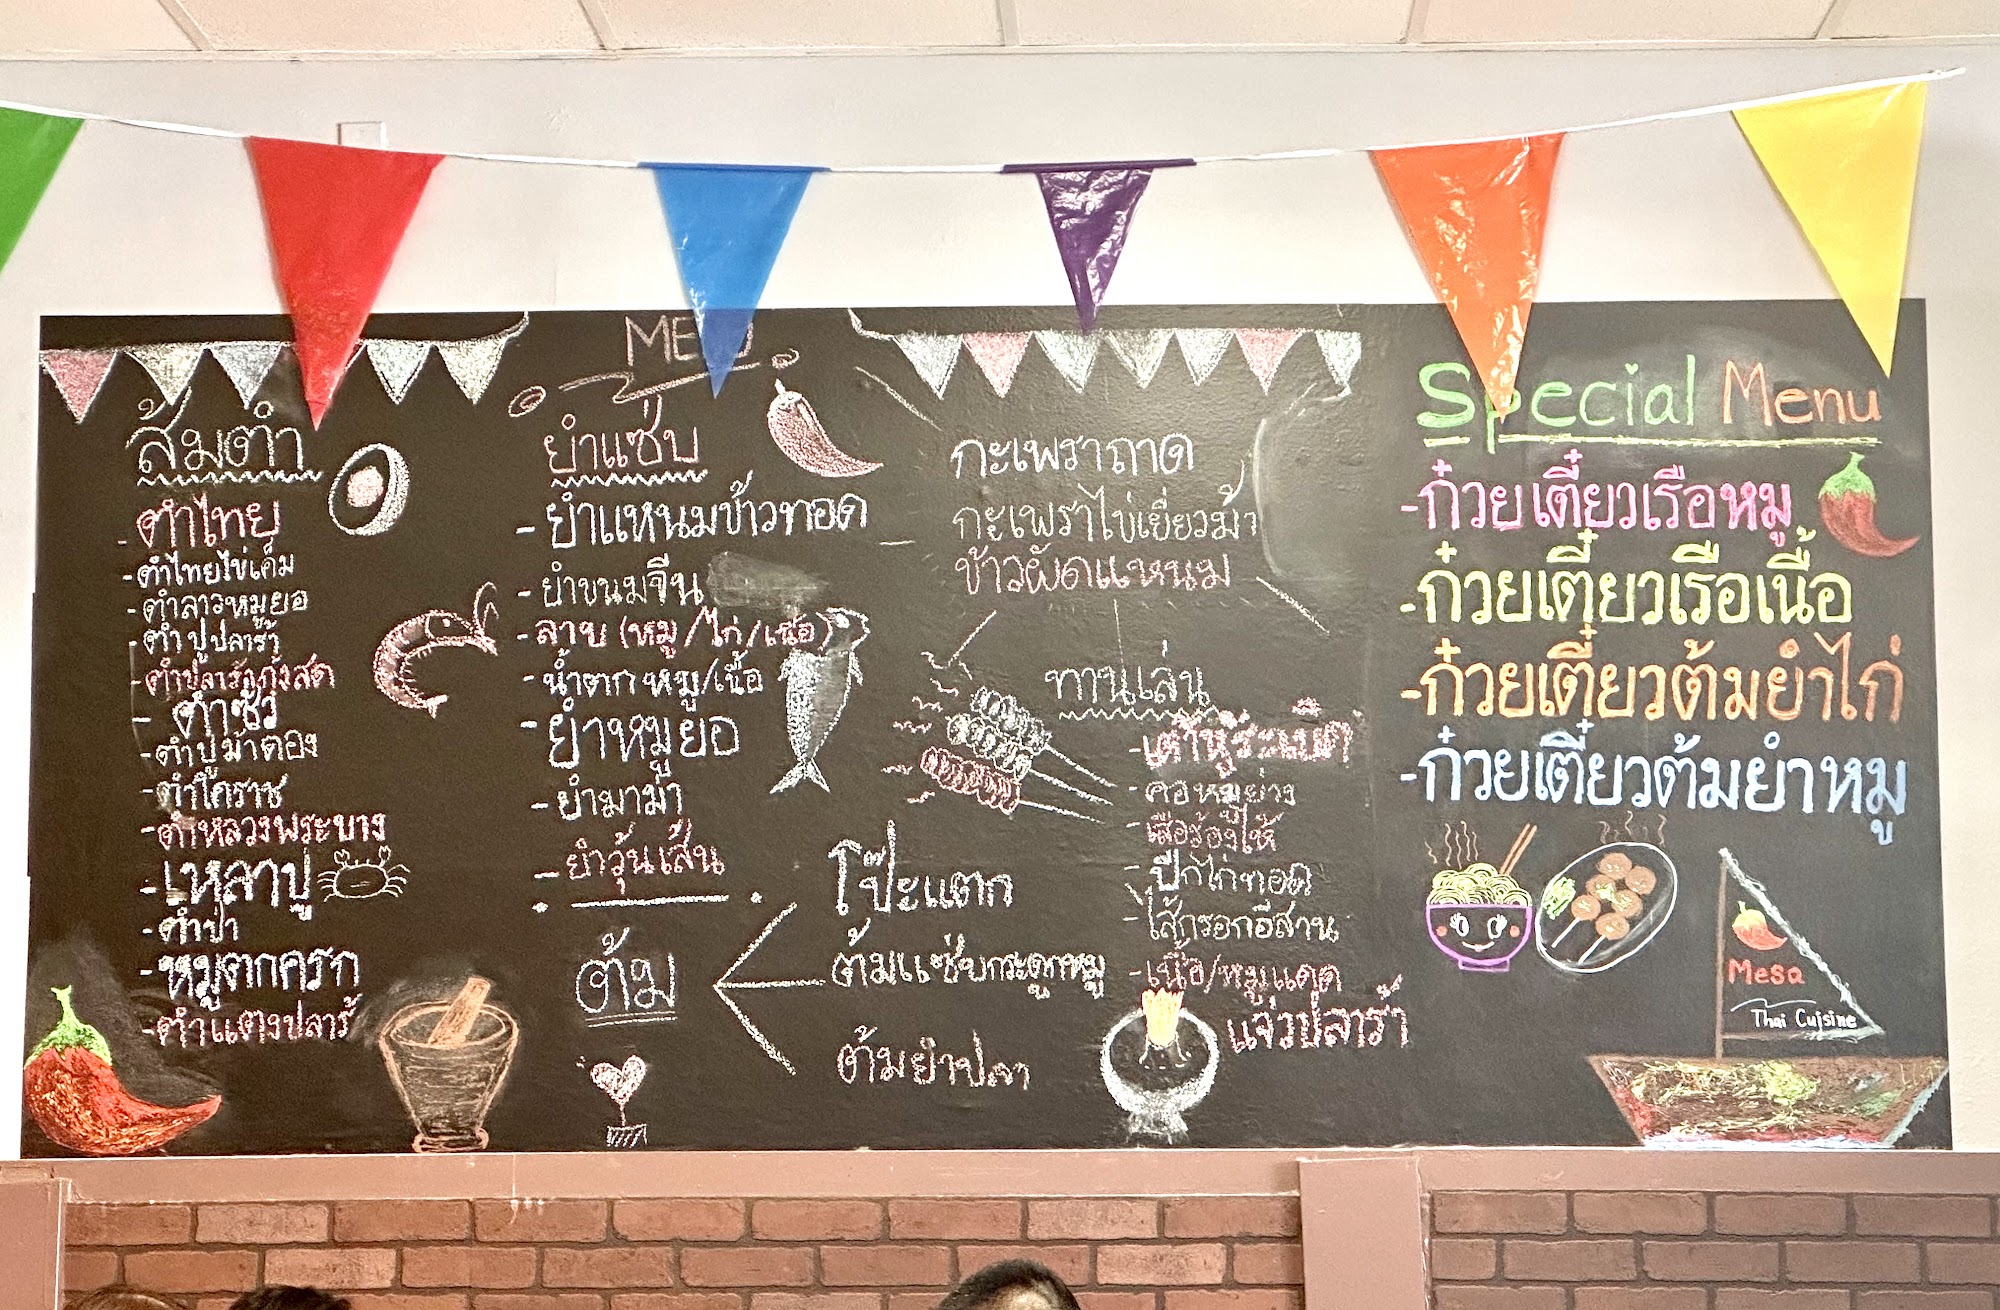 MENU
ส้มตำ
- ตำไทย
- ตำไทยไข่เค็ม
- ตำลาวหมูยอ
- ตำปูปลาร้า
- ตำปลาร้ากุ้งสด
- ตำซั่ว
- ตำปูม้าดอง
- ตำโคราช
- ตำหลวงพระบาง
- เหลาปู
- ตำป่า
- หมูตกครก
- ตำแตงปลาร้า
ยำแซ่บ
- ยำแหนมข้าวทอด
- ยำขนมจีน
- ลาบ (หมู/ไก่/เนื้อ)
- น้ำตก หมู/เนื้อ
- ยำหมูยอ
- ยำมาม่า
- ยำวุ้นเส้น
ต้ม
โป๊ะแตก
ต้มแซ่บกระดูกหมู
ต้มยำปลา
กะเพราถาด
กะเพราไข่เยี่ยวม้า
ข้าวผัดแหนม
ทานเล่น
- คอหมูย่าง
- เสือร้องไห้
- ปีกไก่ทอด
- ไส้กรอกอีสาน
- เนื้อ/หมูแดด
แจ่วปลาร้า
Special Menu
- ก๋วยเตี๋ยวเรือหมู
- ก๋วยเตี๋ยวเรือเนื้อ
- ก๋วยเตี๋ยวต้มยำไก่
- ก๋วยเตี๋ยวต้มยำหมู
Mesa
Thai Cuisine